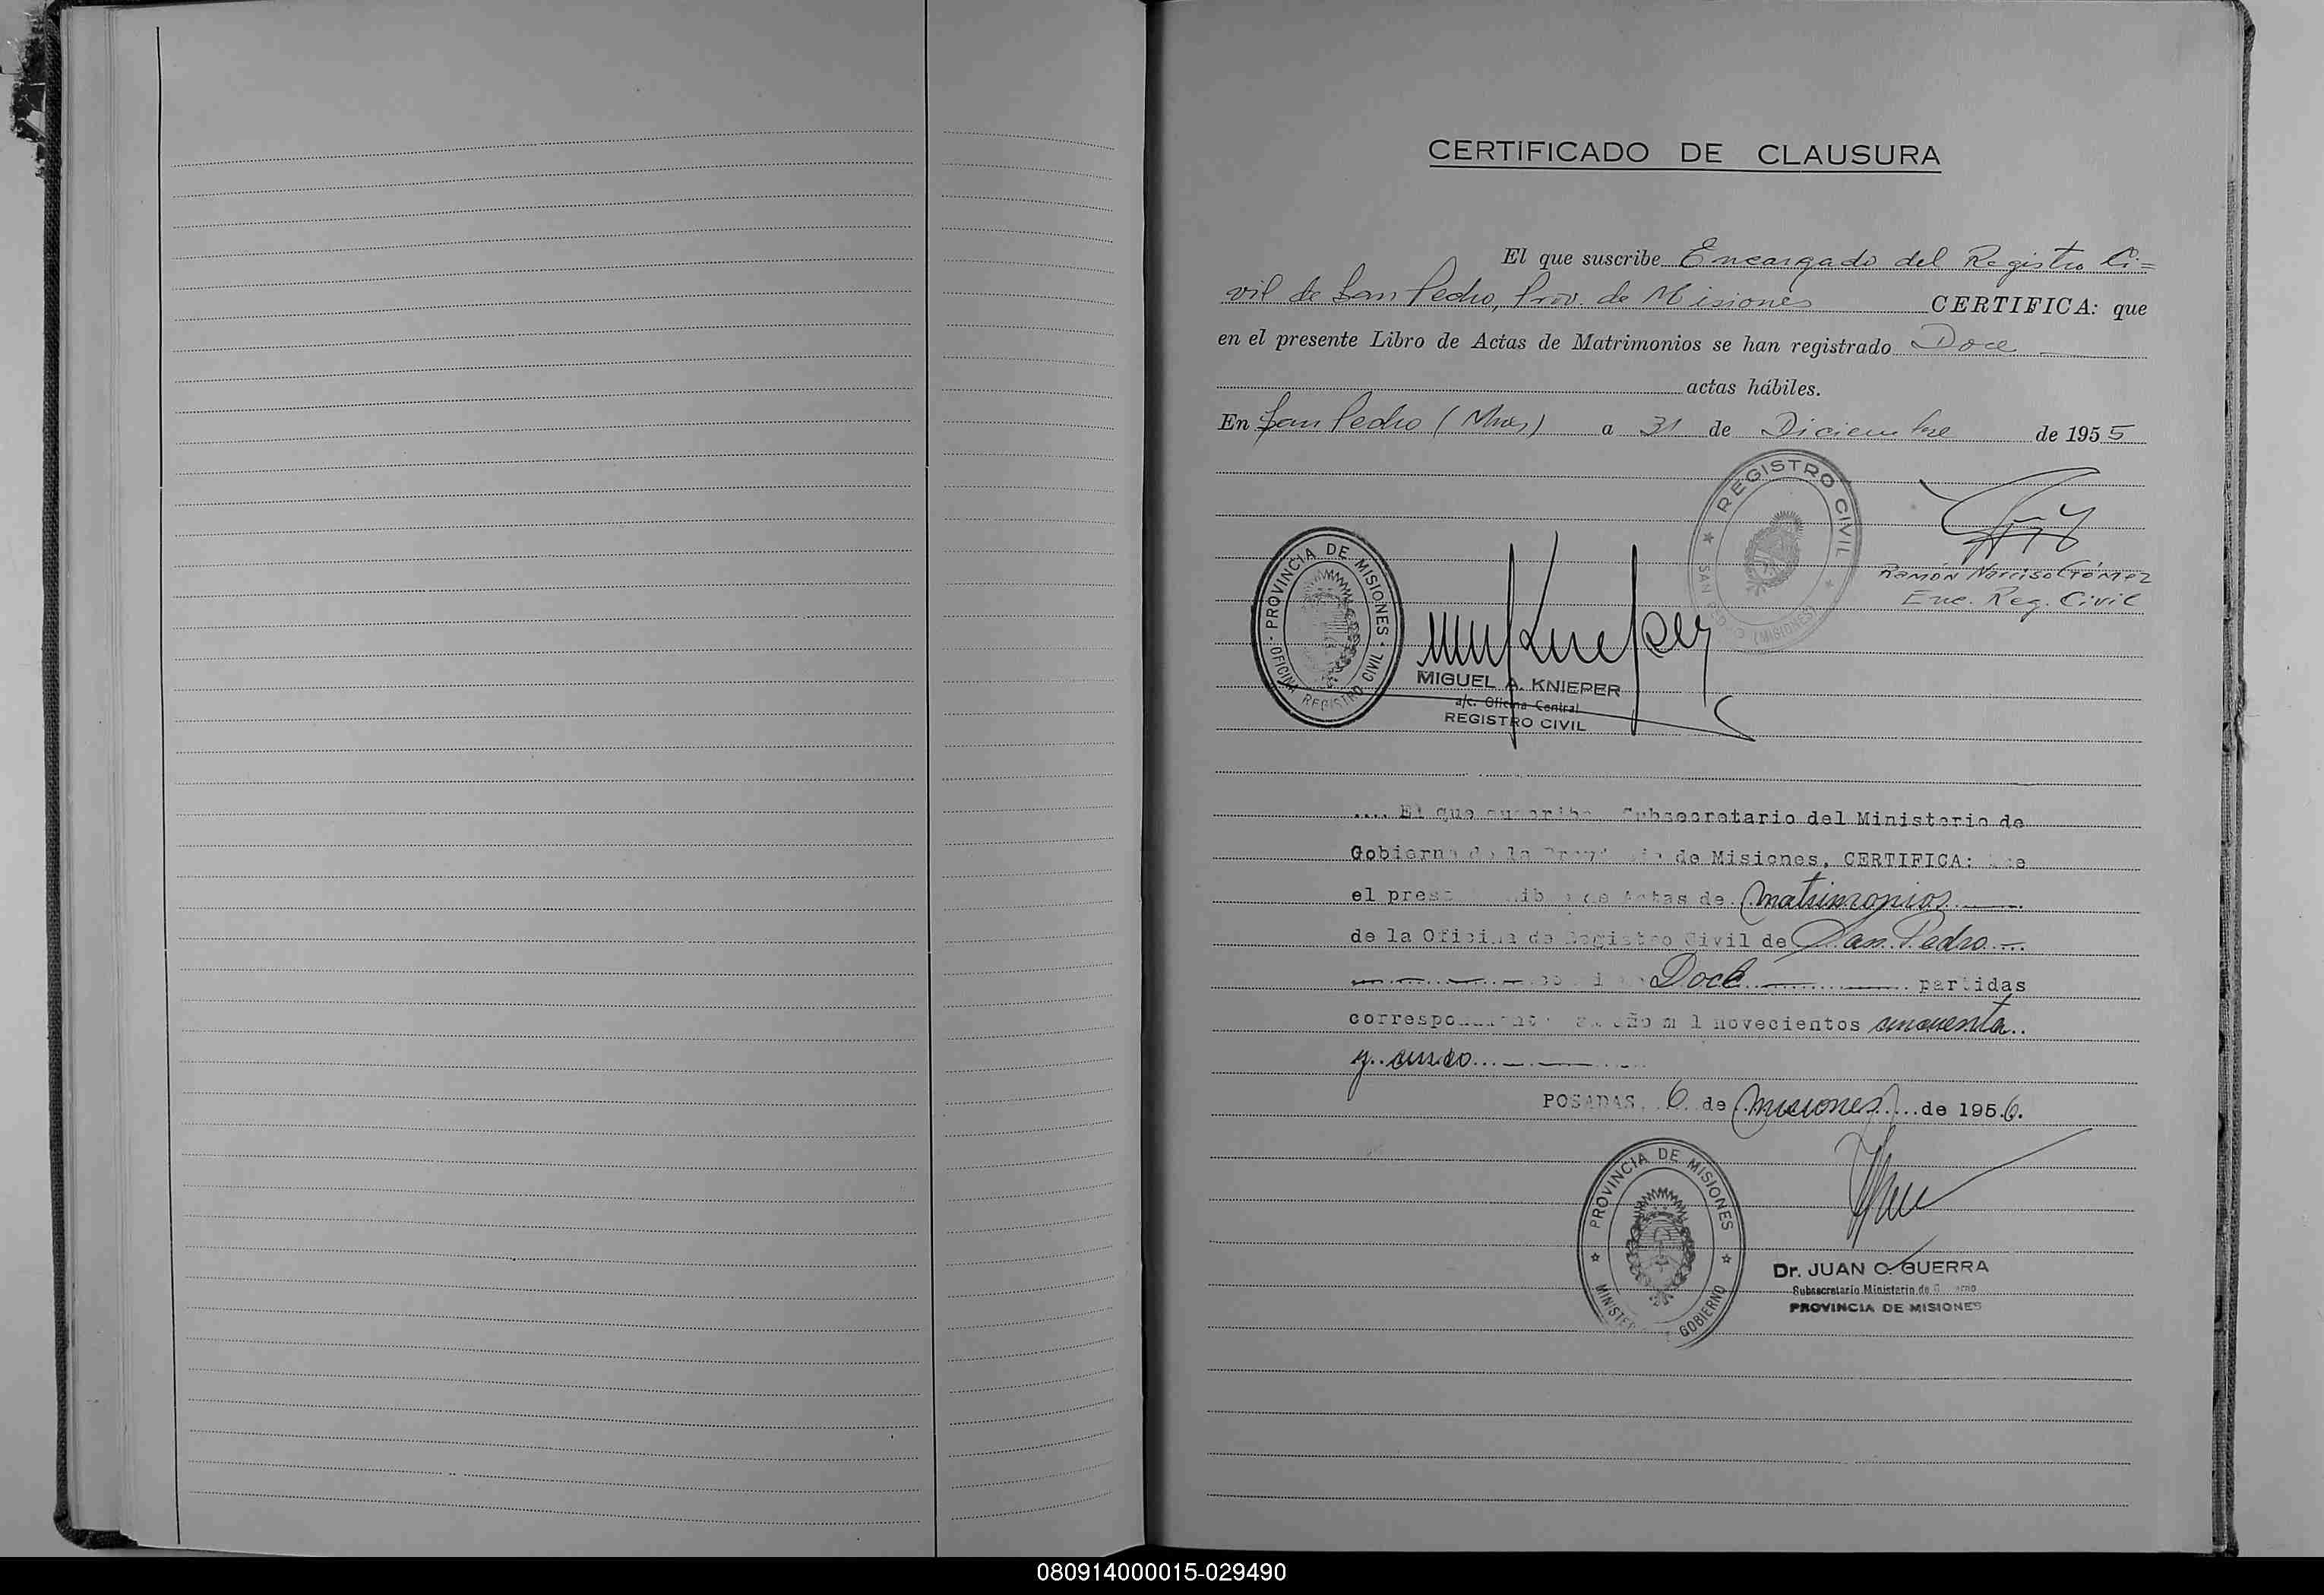 CERTIFICADO DE CLAUSURA
El que suscribe Encargado del Registro Ci=
vil de San Pedro, Prov. de Misiones CERTIFICA: que
en el presente Libro de Actas de Matrimonios se han registrado Doce
actas hábiles.
En San Pedro (Mnes) a 31 de Diciembre de 1955
REGISTRO CIVIL
SAN PEDRO (MISIONES)
Ramón Narciso Gómez
Enc. Reg. Civil
PROVINCIA DE MISIONES
OFICINA REGISTRO CIVIL
MIGUEL A. KNIEPER
a/c. Oficina Central
REGISTRO CIVIL
.... El que suscribe, Subsecretario del Ministerio de
Gobierno de la Provincia de Misiones, CERTIFICA: Que
el presente Libro de Actas de Matrimonios
de la Oficina de Registro Civil de San Pedro
Doce partidas
correspondientes al año mil novecientos cincuenta..
y cinco
POSADAS, 6 de Misiones de 1956.
PROVINCIA DE MISIONES
MINISTERIO DE GOBIERNO
Dr. JUAN C. GUERRA
Subsecretario Ministerio de Gobierno
PROVINCIA DE MISIONES
080914000015-029490